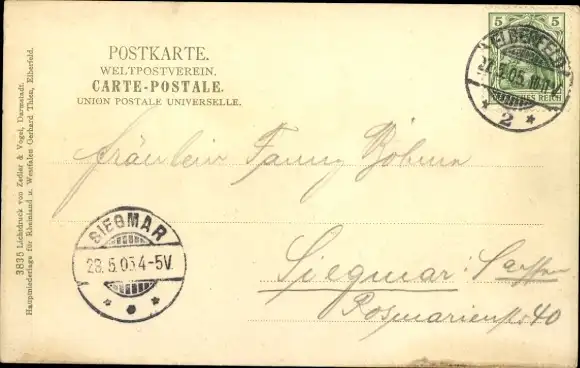 POSTKARTE.
WELTPOSTVEREIN.
CARTE-POSTALE.
UNION POSTALE UNIVERSELLE.
5 5
ELBERFELD
.5.05.
* 2 *
Fräulein Fanny Böhm
SIEGMAR
23.5.05.4-5V.
Siegmar: Sachsen
Rosmarienstr 40
3835 Lichtdruck von Zedler & Vogel, Darmstadt.
Hauptniederlage für Rheinland u. Westfalen Gerhard Thien, Elberfeld.